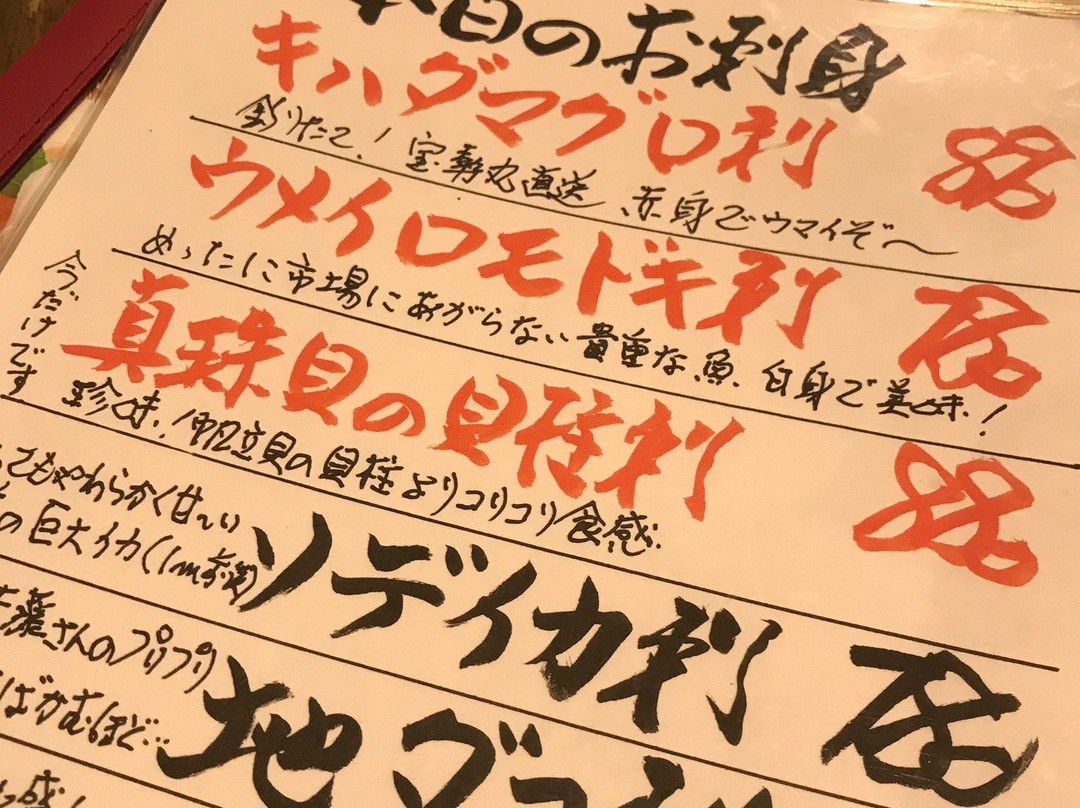 本日のお刺身
キハダマグロ刺
釣りたて！宝勢丸直送、赤身でウマイぞ〜
ウメイロモドキ刺
めったに市場にあがらない貴重な魚、白身で美味！
今だけです
真珠貝の貝柱刺
珍味！帆立貝の貝柱よりコリコリ食感
てもやわらかく甘〜い
の巨大イカ(1m前後)
ソデイカ刺
さんのプリプリ
ばかむほど…
地ダコ